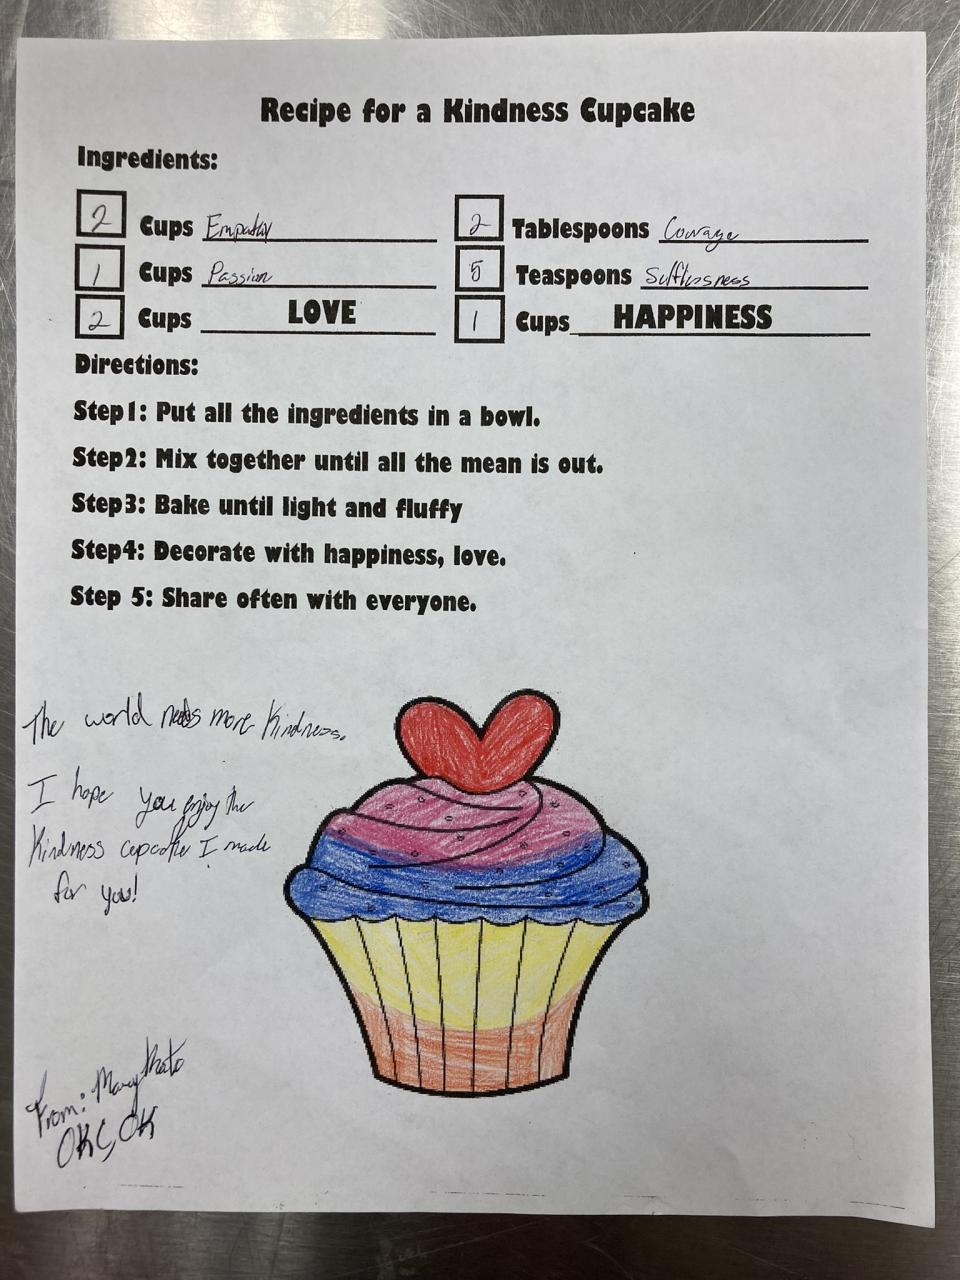 Recipe for a Kindness Cupcake
Ingredients:
2 Cups Empathy 2 Tablespoons Courage
1 Cups Passion 5 Teaspoons Selflessness
2 Cups LOVE 1 Cups HAPPINESS
Directions:
Step1: Put all the ingredients in a bowl.
Step2: Mix together until all the mean is out.
Step3: Bake until light and fluffy
Step4: Decorate with happiness, love.
Step 5: Share often with everyone.
The world needs more Kindness.
I hope you enjoy the
Kindness cupcake I made
for you!
From:
OKC, OK